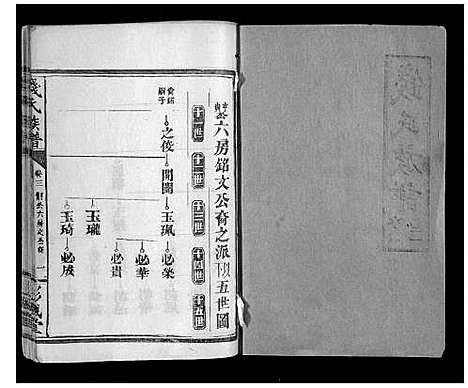 錢氏族譜
三
六房銘文公裔之派下以五世圖
十一世
十二世
十三世
十四世
十五世
之俊
開閶
玉珮
必榮
必華
必貴
玉瓏
玉琦
必成
錢氏族譜
卷三
一
彭城堂